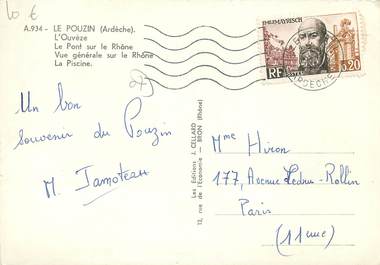 10 €
A.934 - LE POUZIN (Ardèche).
L'Ouvèze
Le Pont sur le Rhône
Vue générale sur le Rhône
La Piscine.
Un bon
souvenir du Pouzin
M. Jamoteau
Les Editions J. CELLARD
12, rue de l'Economie - BRON (Rhône)
EMILE MAYRISCH
RF
0,20
ARDECHE
Mme Hiron
177, Avenue Ledru-Rollin
Paris
(11eme)